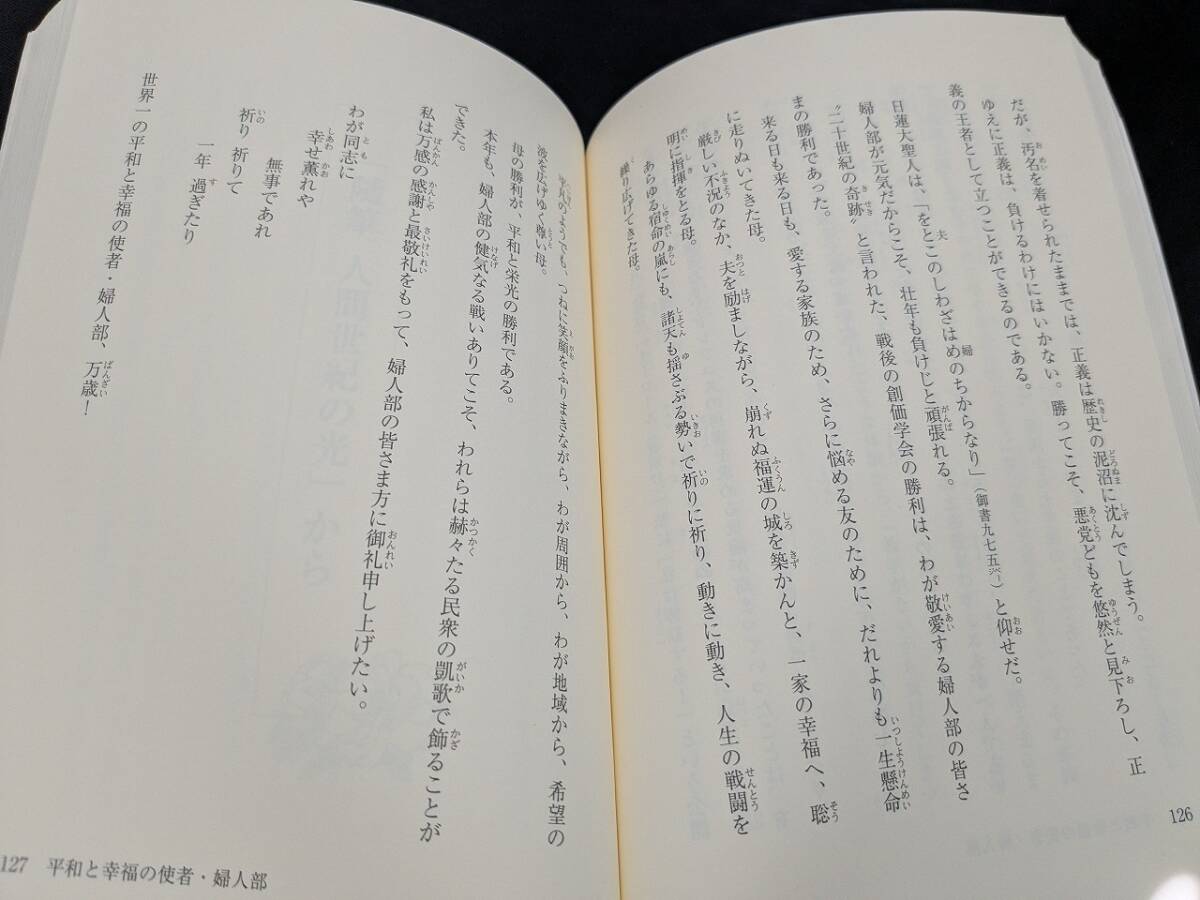 だが、汚名を着せられたままでは、正義は歴史の泥沼に沈んでしまう。
ゆえに正義は、負けるわけにはいかない。勝ってこそ、悪党どもを悠然と見下ろし、正
義の王者として立つことができるのである。
日蓮大聖人は、「をとこのしわざはめのちからなり」（御書九七五㌻）と仰せだ。
婦人部が元気だからこそ、壮年も負けじと頑張れる。
〝二十世紀の奇跡〟と言われた、戦後の創価学会の勝利は、わが敬愛する婦人部の皆さ
まの勝利であった。
来る日も来る日も、愛する家族のため、さらに悩める友のために、だれよりも一生懸命
に走りぬいてきた母。
厳しい不況のなか、夫を励ましながら、崩れぬ福運の城を築かんと、一家の幸福へ、聡
明に指揮をとる母。
あらゆる宿命の嵐にも、諸天も揺さぶる勢いで祈りに祈り、動きに動き、人生の戦闘を
繰り広げてきた母。
のようでも、つねに笑顔をふりまきながら、わが周囲から、わが地域から、希望の
波を広げゆく尊い母。
母の勝利が、平和と栄光の勝利である。
本年も、婦人部の健気なる戦いありてこそ、われらは赫々たる民衆の凱歌で飾ることが
できた。
私は万感の感謝と最敬礼をもって、婦人部の皆さま方に御礼申し上げたい。
わが同志に
幸せ薫れや
無事であれ
祈り 祈りて
一年 過ぎたり
世界一の平和と幸福の使者・婦人部、万歳！
126
127 平和と幸福の使者・婦人部